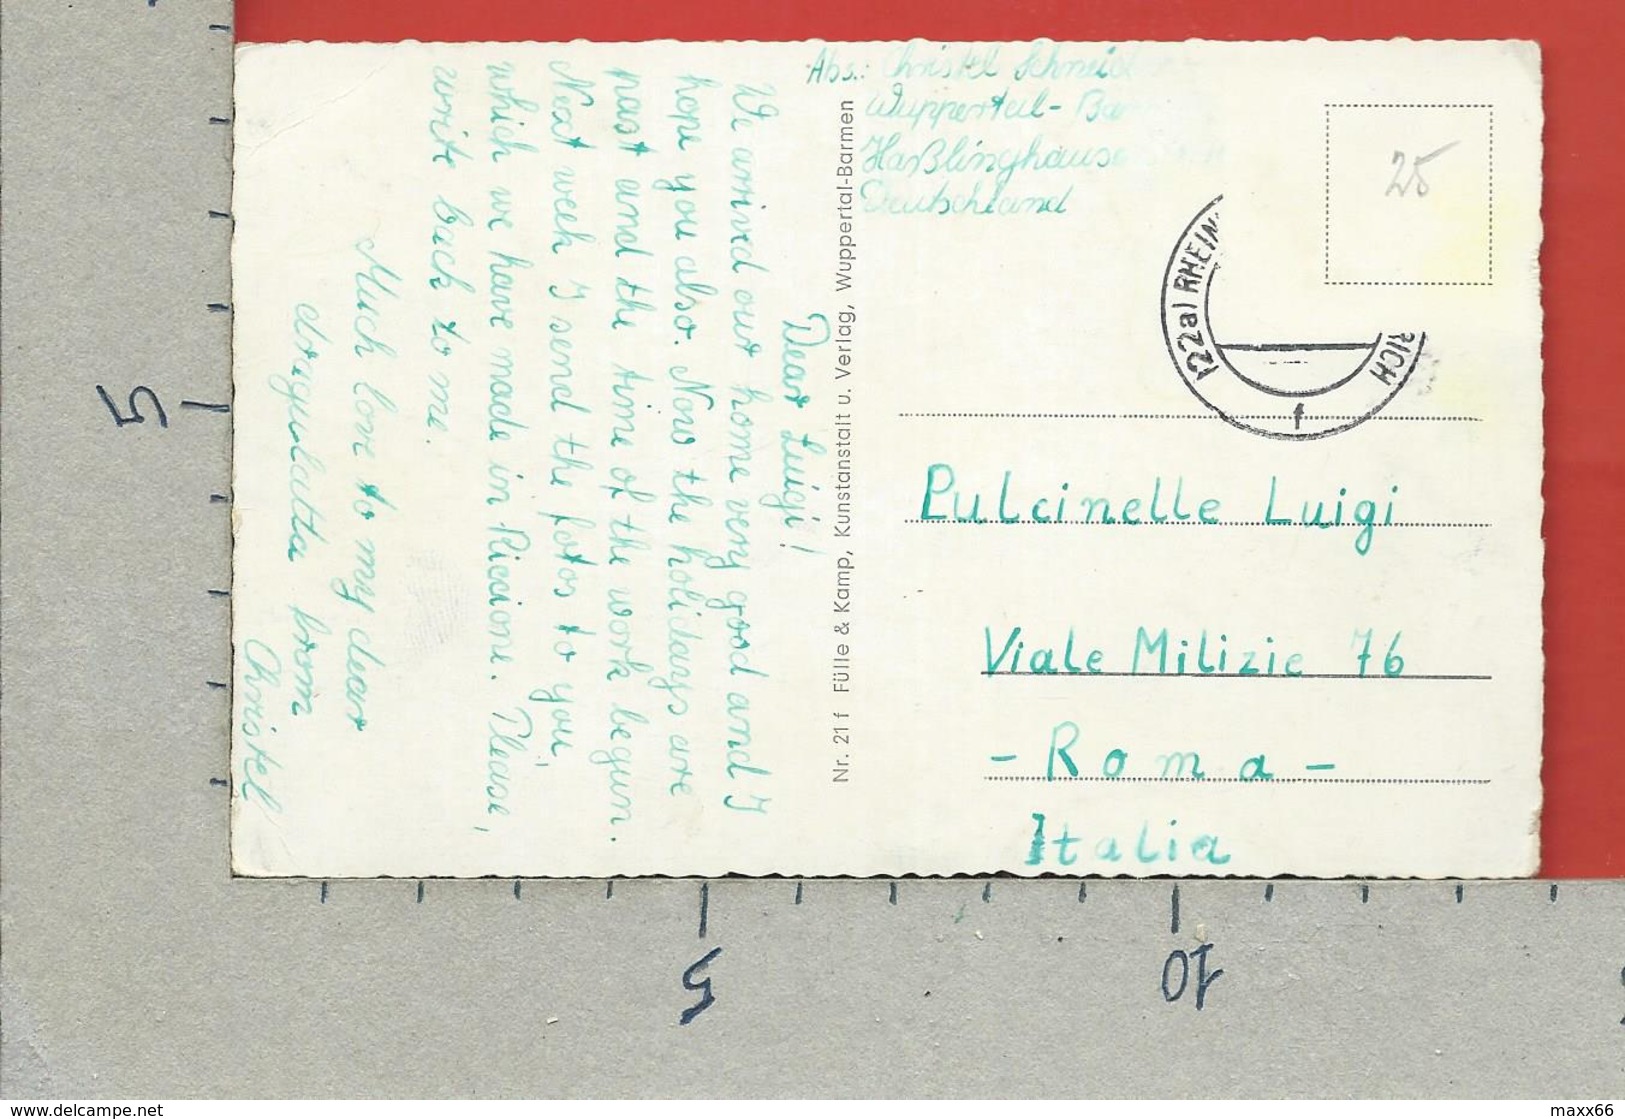 Abs.: Christel Schneid
Wuppertal-Bar
Haßlinghauser
Deutschland
Dear Luigi!
We arrived our home very good and I
hope you also. Now the holidays are
past and the time of the work begun.
Next week I send the fotos to you,
which we have made in Riccione. Please,
write back to me.
Much love to my dear
from
Christel
Nr. 21 f Fülle & Kamp, Kunstanstalt u. Verlag, Wuppertal-Barmen
25
(22a) RHEIN
RICH
f
Pulcinelle Luigi
Viale Milizie 76
- Roma -
Italia
5
5
10
www.delcampe.net
maxx66